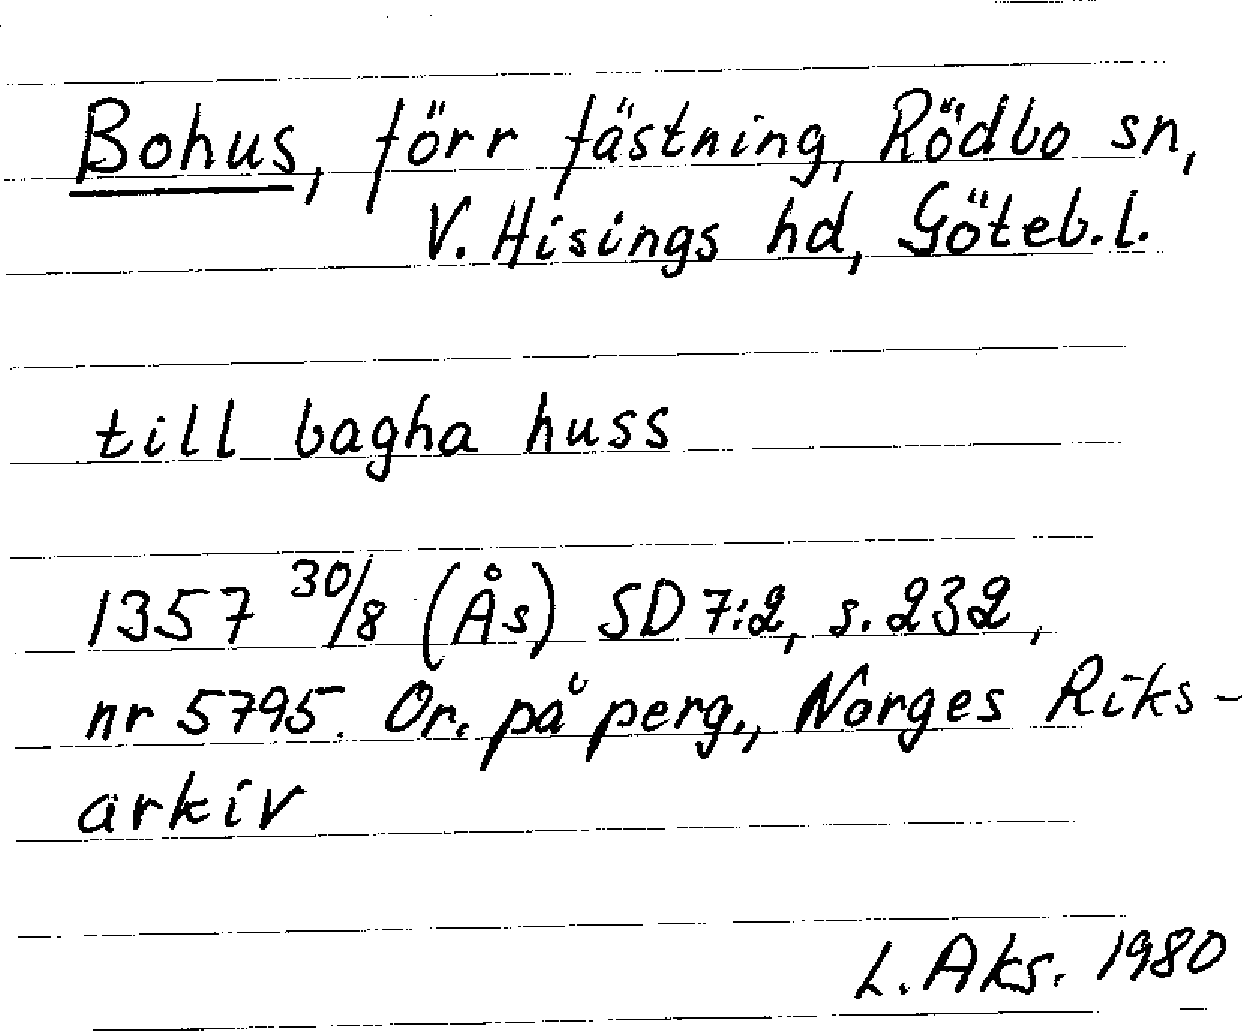 Bohus, förr fästning, Rödbo sn,
V. Hisings hd, Göteb. l.
till bagha huss
1357 30/8 (Ås) SD 7:2, s. 232,
nr 5795. Or. på perg., Norges Riks-
arkiv
L. Aks. 1980